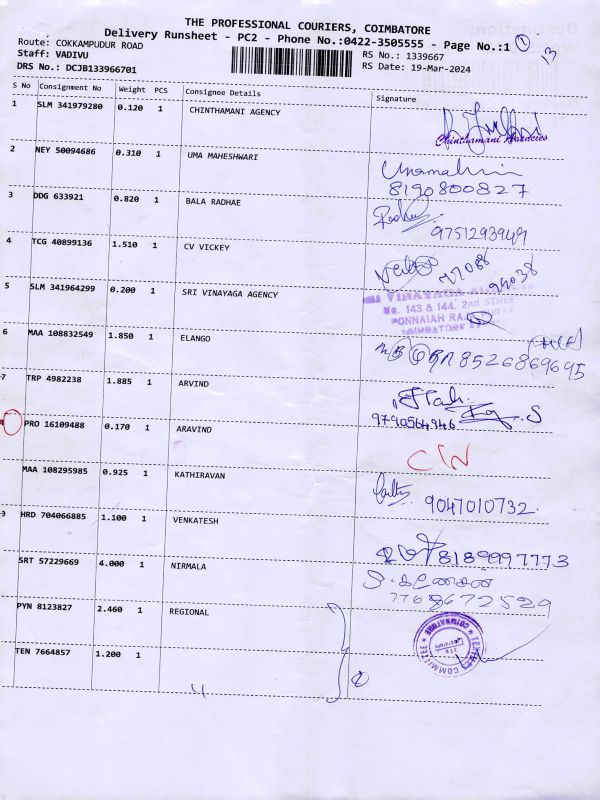 THE PROFESSIONAL COURIERS, COIMBATORE
Delivery Runsheet - PC2 - Phone No.:0422-3505555 - Page No.:1
Route: COKKAMPUDUR ROAD
RS No.: 1339667
Staff: VADIVU
RS Date: 19-Mar-2024
DRS No.: DCJB133966701
S No Consignment No Weight PCS Consignee Details Signature
1 SLM 341979280 0.120 1 CHINTHAMANI AGENCY
Chinthamani Agencies
2 NEY 50094686 0.310 1 UMA MAHESHWARI
8190800827
3 DDG 633921 0.820 1 BALA RADHAE
9751293949
4 TCG 40899136 1.510 1 CV VICKEY
5 SLM 341964299 0.200 1 SRI VINAYAGA AGENCY
VINAYAGA
No. 143 & 144. 2nd STREET
PONNAIAH
COIMBATORE
6 MAA 108832549 1.850 1 ELANGO
8526869695
7 TRP 4982238 1.885 1 ARVIND
9790564946
PRO 16109488 0.170 1 ARAVIND
MAA 108295985 0.925 1 KATHIRAVAN
9047010732
9 HRD 704066885 1.100 1 VENKATESH
8189997773
SRT 57229669 4.000 1 NIRMALA
PYN 8123827 2.460 1 REGIONAL
COMMITTEE
COIMBATORE
TEN 7664857 1.200 1